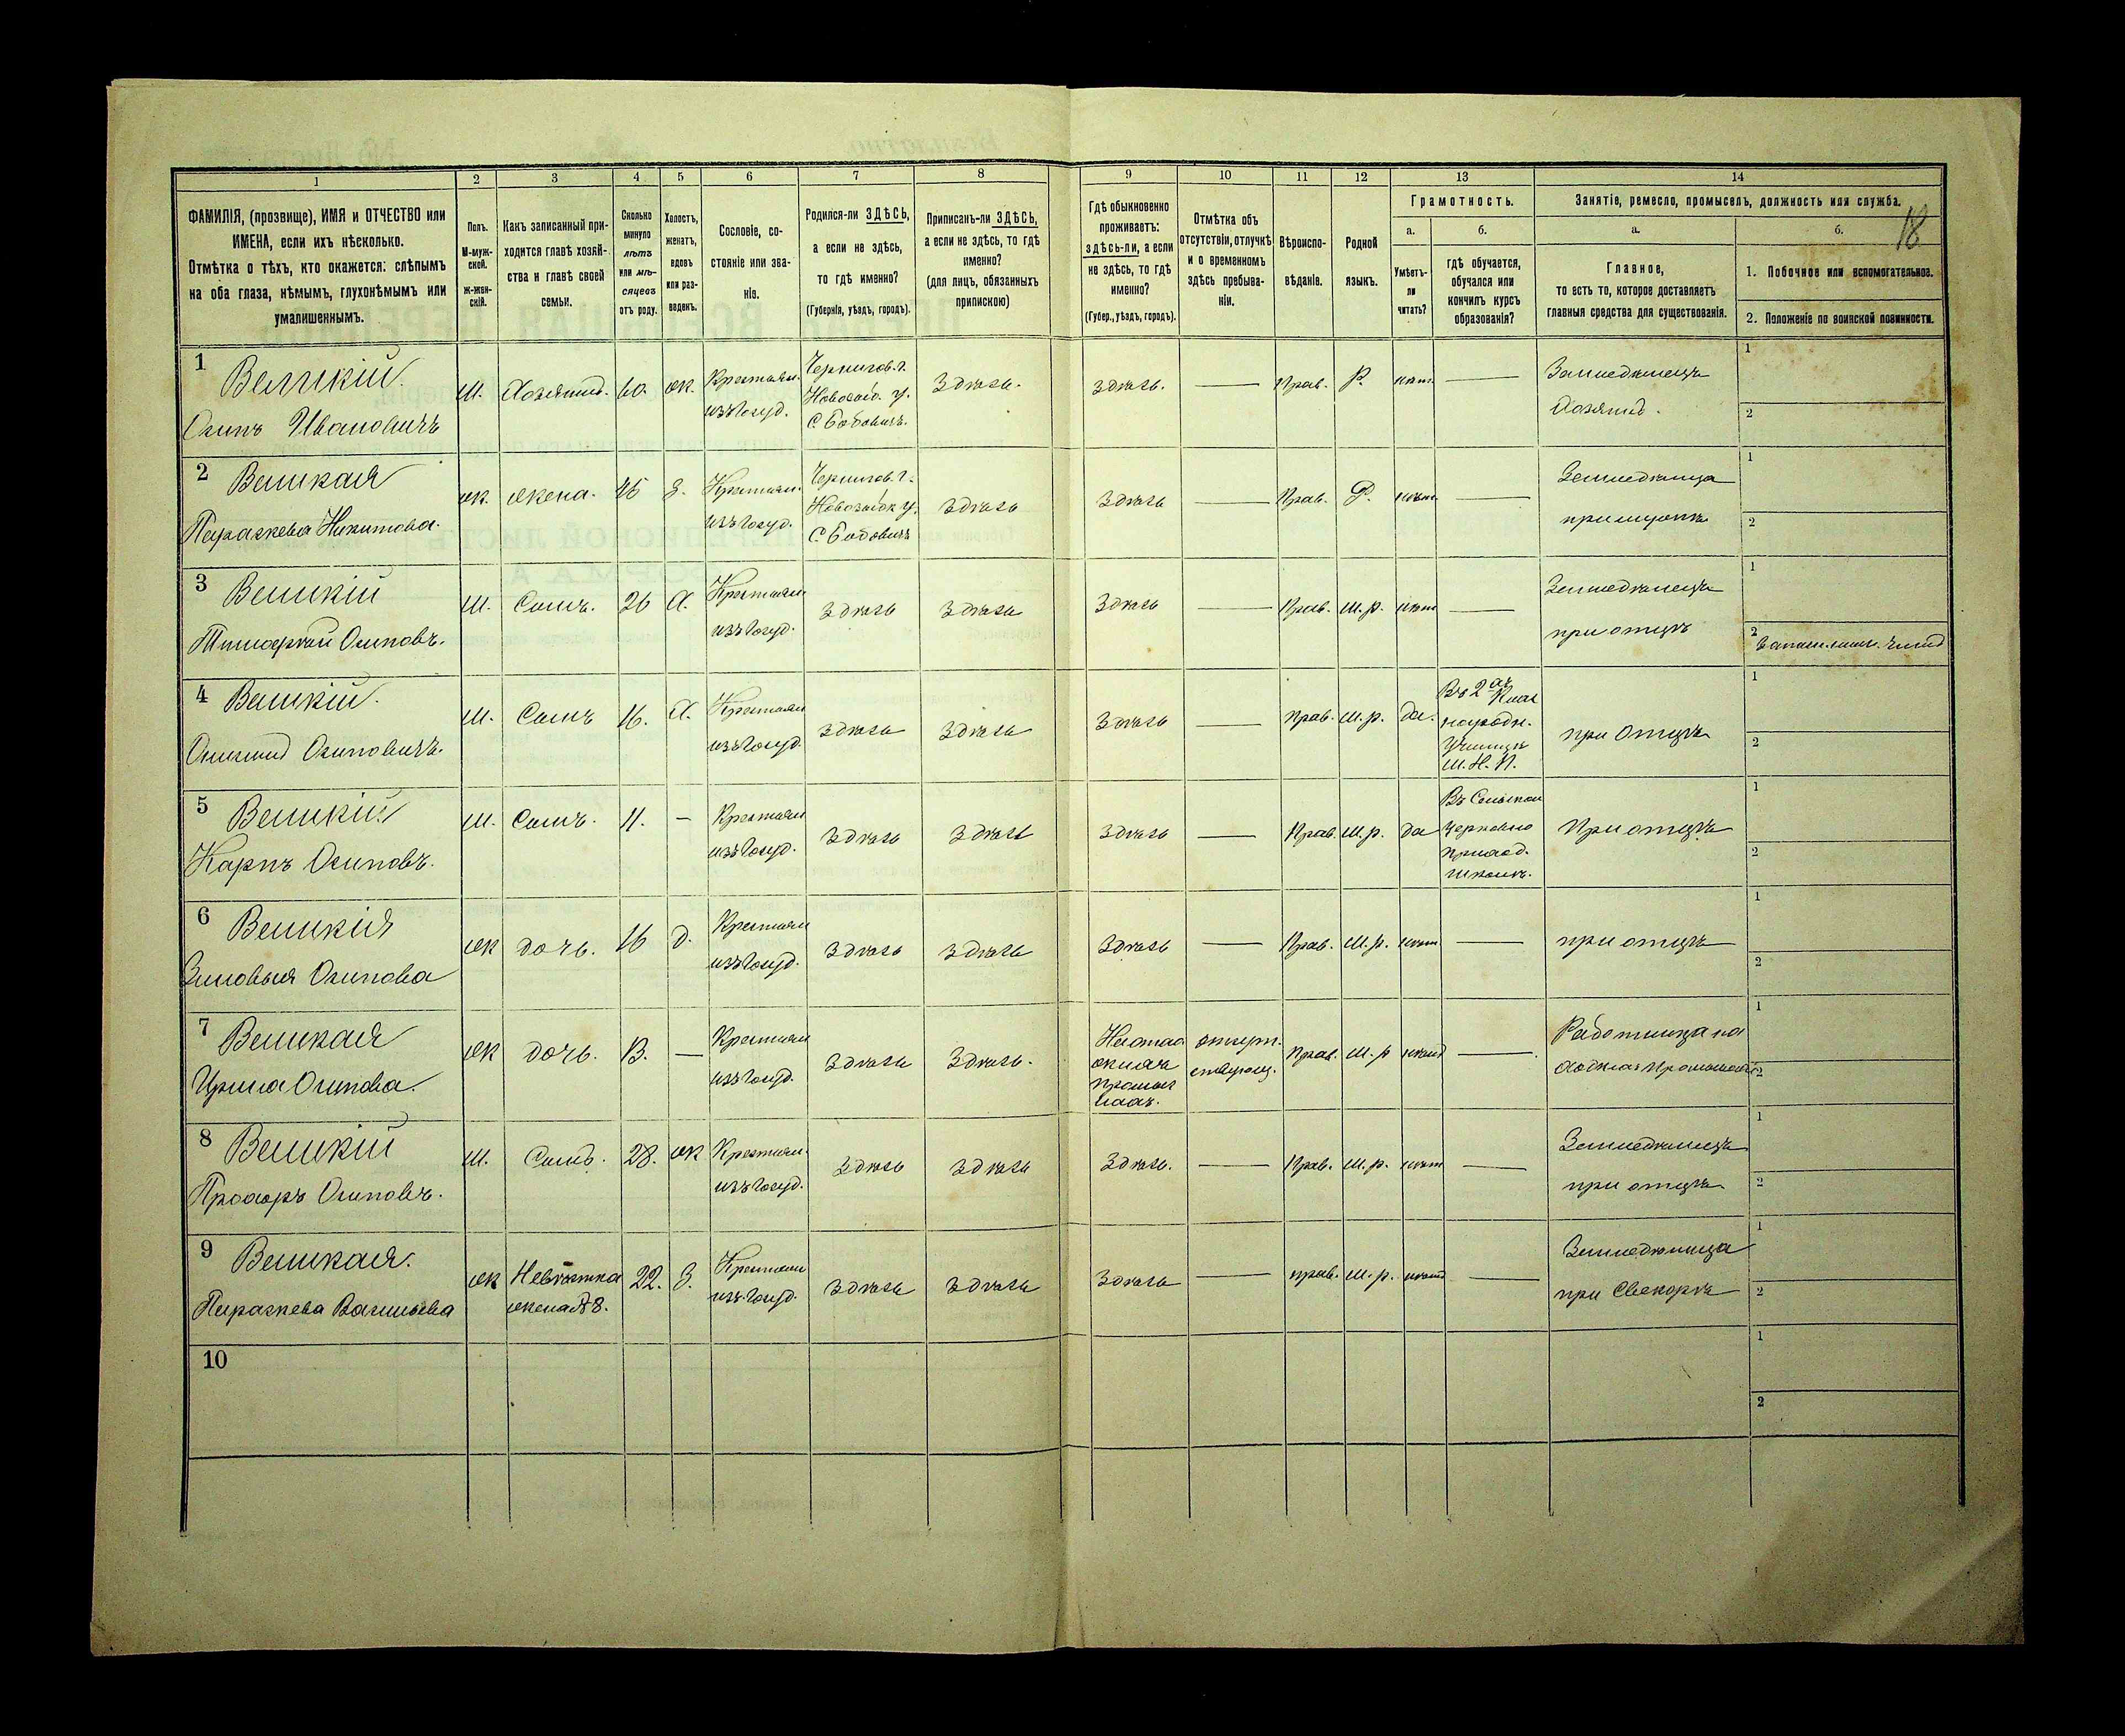 1 2 3 4 5 6 7 8 9 10 11 12 13 14
ФАМИЛІЯ, (прозвище), ИМЯ и ОТЧЕСТВО или
ИМЕНА, если ихъ нѣсколько.
Отмѣтка о тѣхъ, кто окажется: слѣпымъ
на оба глаза, нѣмымъ, глухонѣмымъ или
умалишеннымъ.
Полъ.
М-муж-
ской.
ж-жен-
скій.
Какъ записанный при-
ходится главѣ хозяй-
ства и главѣ своей
семьи.
Сколько
минуло
лѣтъ
или мѣ-
сяцевъ
отъ роду.
Холостъ,
женатъ,
вдовъ
или раз-
веденъ.
Сословіе, со-
стояніе или зва-
ніе.
Родился-ли ЗДѢСЬ,
а если не здѣсь,
то гдѣ именно?
(Губернія, уѣздъ, городъ).
Приписанъ-ли ЗДѢСЬ,
а если не здѣсь, то гдѣ
именно?
(для лицъ, обязанныхъ
припискою)
Гдѣ обыкновенно
проживаетъ:
здѣсь-ли, а если
не здѣсь, то гдѣ
именно?
(Губер., уѣздъ, городъ).
Отмѣтка объ
отсутствіи, отлучкѣ
и о временномъ
здѣсь пребыва-
ніи.
Вѣроиспо-
вѣданіе.
Родной
языкъ.
Грамотность.
а.
Умѣетъ-
ли
читать?
б.
гдѣ обучается,
обучался или
кончилъ курсъ
образованія?
Занятіе, ремесло, промыселъ, должность или служба.
18
а.
Главное,
то есть то, которое доставляетъ
главныя средства для существованія.
б.
1. Побочное или вспомогательное.
2. Положеніе по воинской повинности.
1 Великій.
Осипъ Ивановичъ
м. Хозяинъ. 60. ж.
Крестьян.
изъ госуд.
Чернигов. г.
Новозыб. у.
С. Бобовичъ.
Здѣсь. здѣсь. — Прав. Р. нѣт —
Земледѣлецъ
Хозяинъ.
1
2
2 Великая
Параскева Никитова.
ж. жена. 45 З.
Крестьян.
изъ госуд.
Чернигов. г.
Новозыбк. у.
С. Бобовичъ
Здѣсь Здѣсь — Прав. Р. нѣт —
Земледѣлица
при мужѣ
1
2
3 Великій
Тимофей Осиповъ.
м. Сынъ. 26 Х.
Крестьян.
изъ госуд.
Здѣсь Здѣсь Здѣсь — Прав. М. р. нѣт —
Земледѣлецъ
при отцѣ
1
2
4 Великій.
Осиповичъ.
м. Сынъ 16. Х.
Крестьян
изъ госуд.
здѣсь здѣсь Здѣсь — Прав. М. р. да.
Въ 2-хъ Клас
народн.
Училищѣ
М. Н. П.
при Отцѣ
1
2
5 Великій
Карпъ Осиповъ.
м. Сынъ. 11. —
Крестьян
изъ госуд.
Здѣсь Здѣсь Здѣсь — Прав. М. р. да
Въ Сельской
Церковно
приход.
школѣ.
При отцѣ
1
2
6 Великія
Зиновья Осипова
ж дочь. 16 д.
Крестьян
изъ госуд.
Здѣсь Здѣсь Здѣсь — Прав. М. р. нѣт —
при отцѣ
1
2
7 Великая
Ирина Осипова.
ж дочь. 13. —
Крестьян
изъ госуд.
Здѣсь Здѣсь.
На отхо
жихъ
Промыс
лахъ.
Прав. М. р нѣтъ —
Работница на
отхожихъ Промыслахъ
1
2
8 Великій
Прохоръ Осиповъ.
м. Сынъ. 28. ж
Крестьян.
изъ госуд.
Здѣсь Здѣсь Здѣсь. — Прав. М. р. нѣт —
Земледѣлецъ
при отцѣ
1
2
9 Великая.
Параскева Васильева
ж Невѣстка
жена № 8.
22. З.
Крестьян
изъ госуд.
Здѣсь Здѣсь Здѣсь — прав. М. р. нѣтъ —
Земледѣлица
при Свекорѣ
1
2
10
1
2